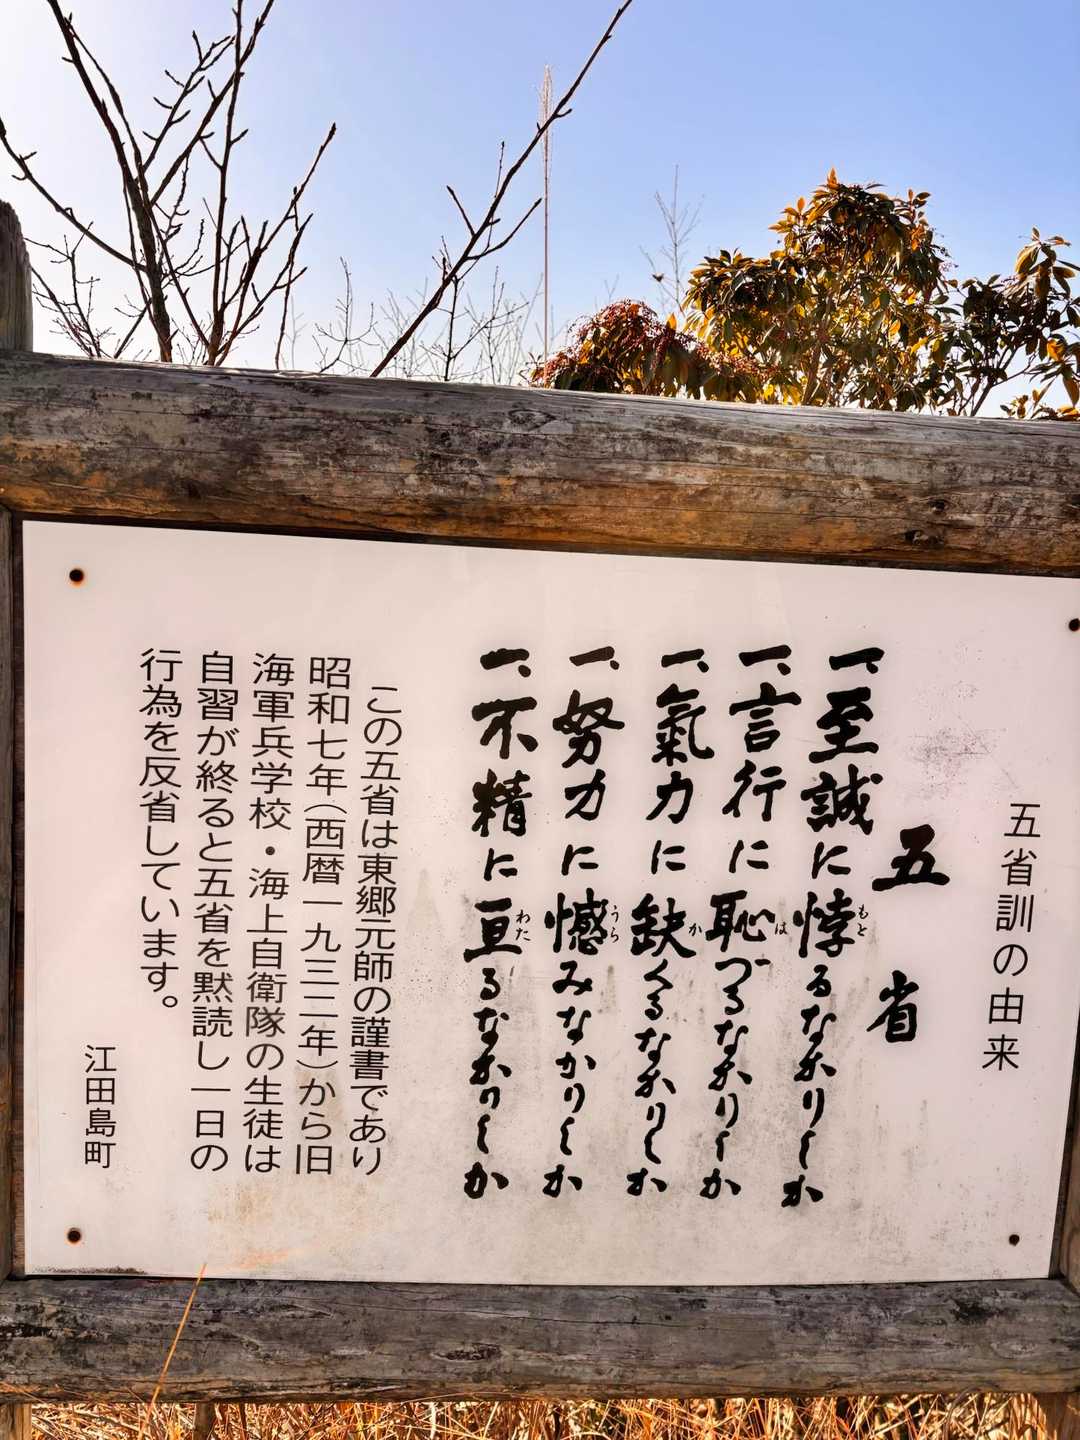 五省訓の由来
五省
一、至誠に悖るなかりしか
もと
一、言行に恥づるなかりしか
は
一、氣力に缺くるなかりしか
か
一、努力に憾みなかりしか
うら
一、不精に亘るなかりしか
わた
この五省は東郷元師の謹書であり
昭和七年(西暦一九三二年)から旧
海軍兵学校・海上自衛隊の生徒は
自習が終ると五省を黙読し一日の
行為を反省しています。
江田島町